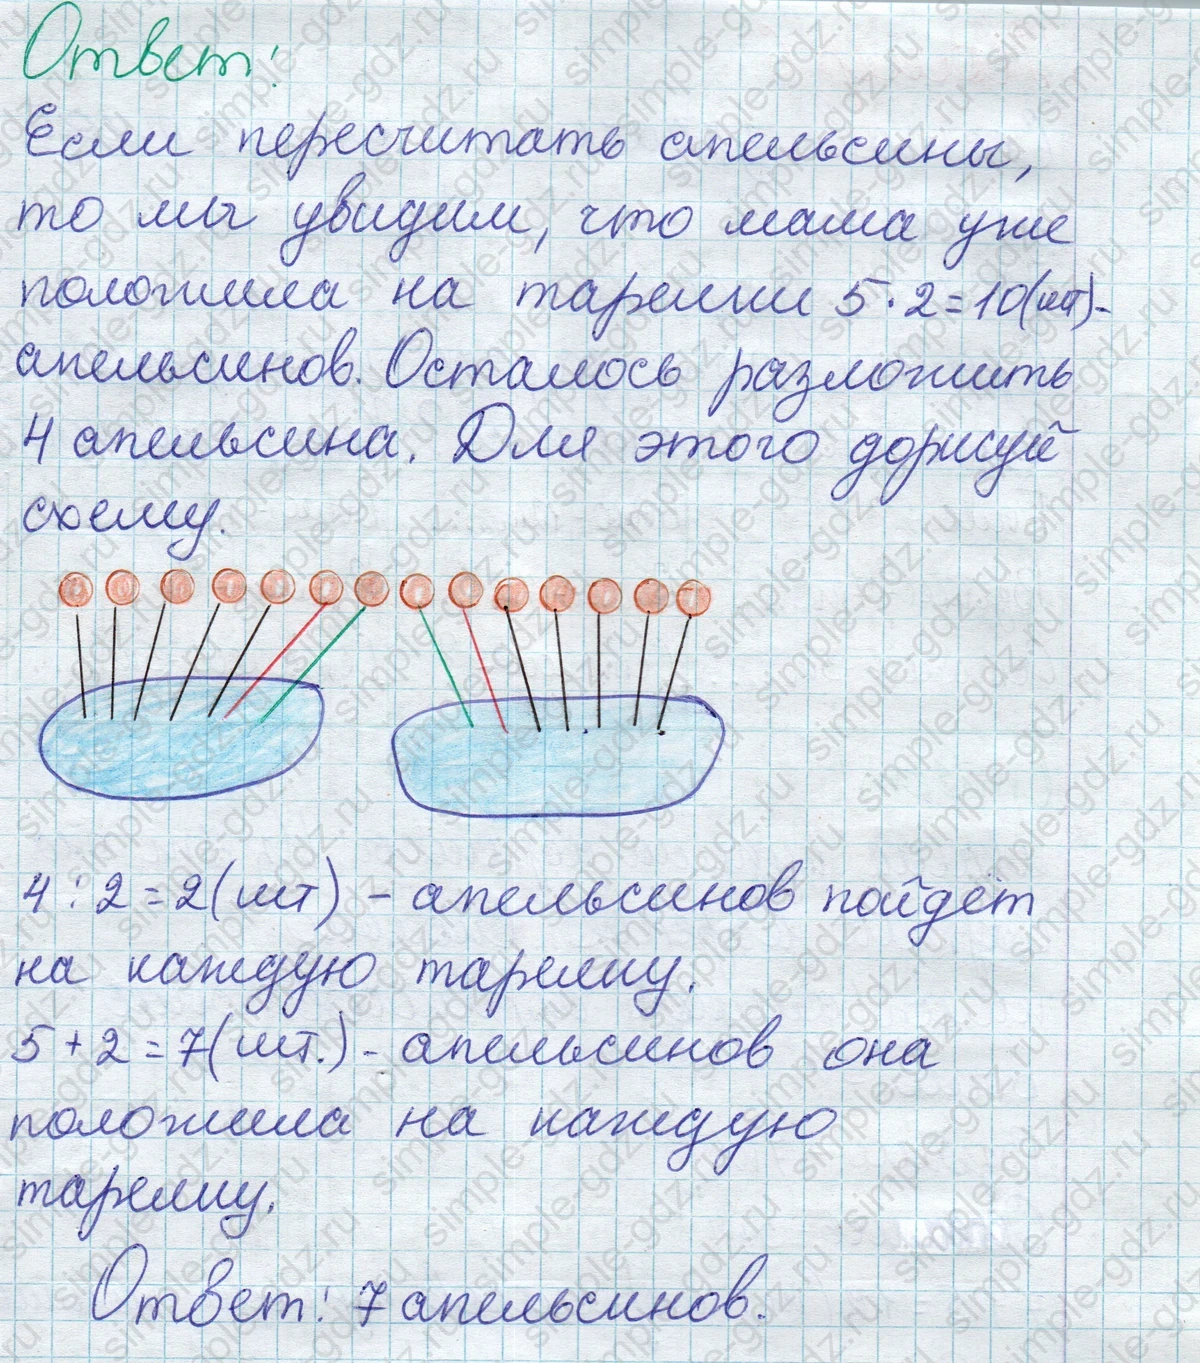 Ответ:
Если пересчитать апельсины,
то мы увидим, что мама уже
положила на тарелки 5·2=10(шт)-
апельсинов. Осталось разложить
4 апельсина. Для этого дорисуй
схему.
4:2=2(шт) - апельсинов пойдёт
на каждую тарелку.
5+2=7(шт.) - апельсинов она
положила на каждую
тарелку.
Ответ: 7 апельсинов.
simple-gdz.ru